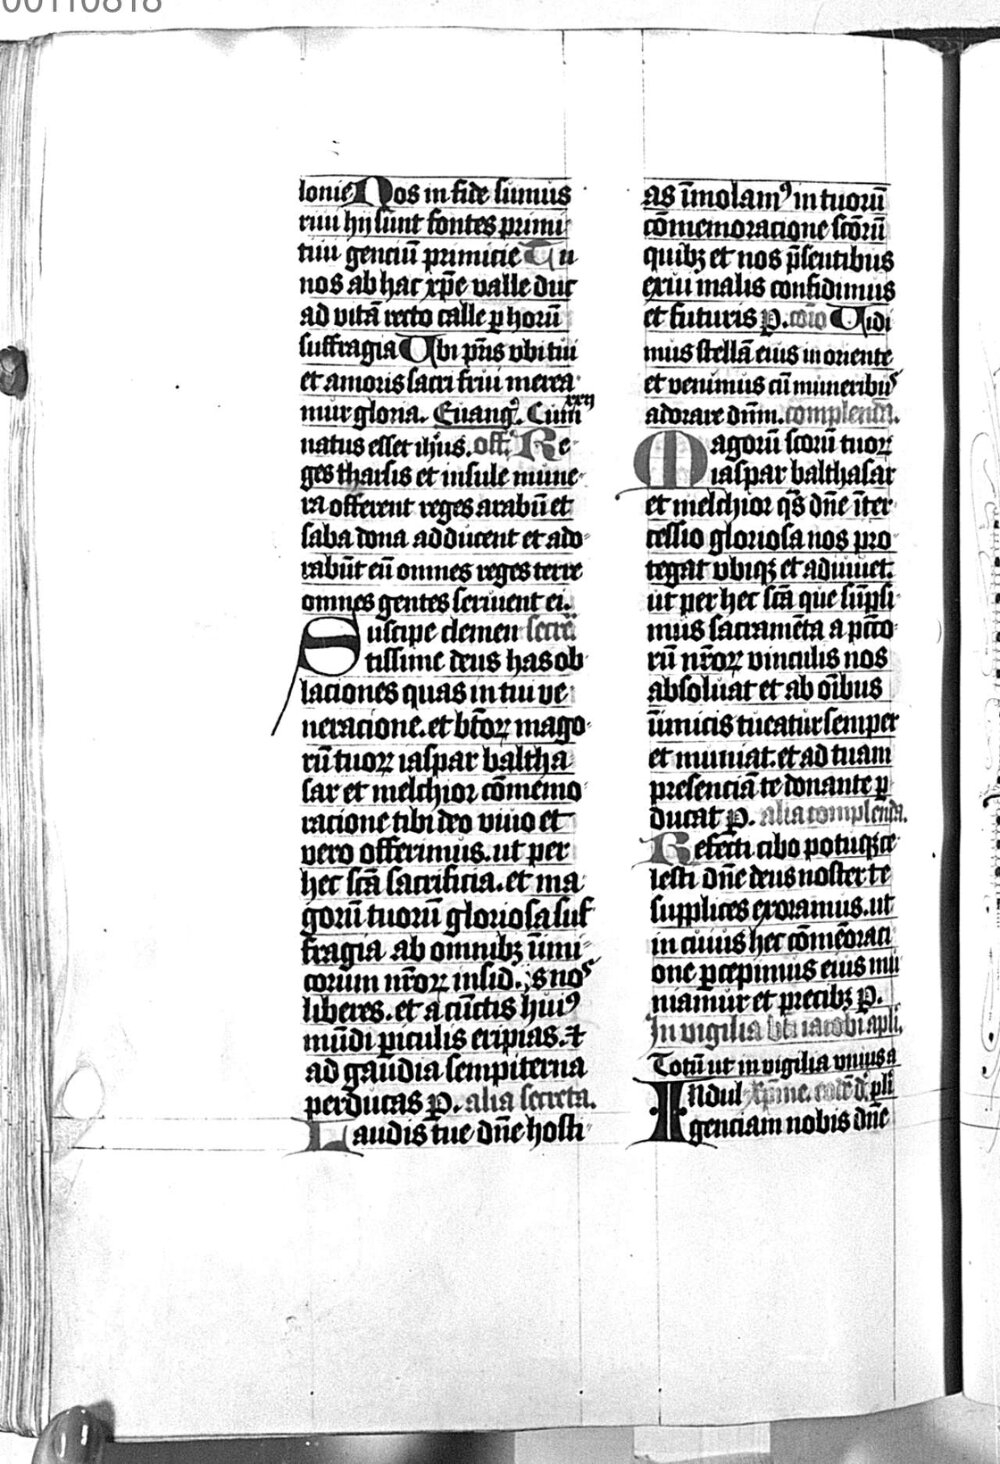 00110818
lonie Nos in fide sumus
riui hij sunt fontes primi
tiui genciu᷑ primicie Tu
nos ab hac xp̄e valle duc
ad vitā recto calle ꝑ horū
suffragia Ubi pr̄is ubi tui
et amoris sacri frui merea
mur gloria. Euangꝰ. Cum xxij
natus esset ih̄us. off. Re
ges tharsis et insule mune
ra offerent reges arabū et
saba dona adducent et ado
rabūt eū omnes reges terre
omnes gentes seruient ei.
Suscipe clemen secre᷑
tissime deus has ob
laciones quas in tui ve
neracione. et bt̄oꝝ mago
rū tuoꝝ iaspar baltha
sar et melchior cōmemo
racione tibi deo viuo et
vero offerimus. ut per
hec scā sacrificia. et ma
gorū tuorū gloriosa suf
fragia ab omnibꝫ inimi
corum nr̄oꝝ insid.js nos
liberes. et a cūctis huiꝰ
mūdi ꝑiculis eripias. ⁊
ad gaudia sempiterna
perducas P. alia secreta.
Laudis tue dn̄e hosti
as īmolamꝰ in tuorū
cōmemoracione scōrū
quibꝫ et nos p̄sentibus
exui malis confidimus
et futuris P. cōio Uidi
mus stellā eius in oriente
et venimus cū muneribus
adorare dn̄m. complenda.
Magorū scorū tuoꝝ
iaspar balthasar
et melchior qs̄ dn̄e īter
cessio gloriosa nos pro
tegat ubiqꝫ et adiuuet.
ut per hec scā que sūpsi
mus sacramēta a pccō
rū nr̄oꝝ vinculis nos
absoluat et ab oībus
inimicis tueatur semper
et muniat. et ad tuam
presenciā te donante ꝑ
ducat P. alia complenda.
Refecti cibo potuqꝫ ce
lesti dn̄e deus noster te
supplices exoramus. ut
in cuius hec cōmēoraci
one ꝑcepimus eius mu
niamur et precibꝫ P.
In vigilia bti iacobi apli.
Totū ut in vigilia unius a
Indul pli
genciam nobis dn̄e